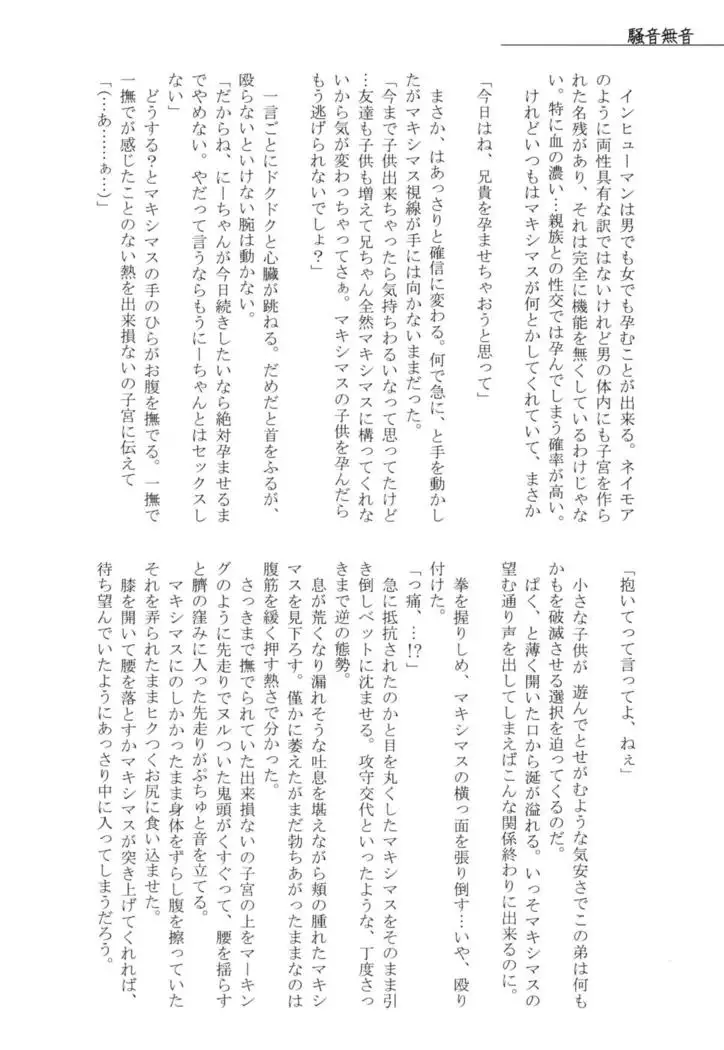 騒音無音
インヒューマンは男でも女でも孕むことが出来る。ネイモア
のように両性具有な訳ではないけれど男の体内にも子宮を作ら
れた名残があり、それは完全に機能を無くしているわけじゃな
い。特に血の濃い…親族との性交では孕んでしまう確率が高い。
けれどいつもはマキシマスが何とかしてくれていて、まさか
「今日はね、兄貴を孕ませちゃおうと思って」
まさか、はあっさりと確信に変わる。何で急に、と手を動かし
たがマキシマス視線が手には向かないままだった。
「今まで子供出来ちゃったら気持ちわるいなって思ってたけど
…友達も子供も増えて兄ちゃん全然マキシマスに構ってくれな
いから気が変わっちゃってさぁ。マキシマスの子供を孕んだら
もう逃げられないでしょ？」
一言ごとにドクドクと心臓が跳ねる。だめだと首をふるが、
殴らないといけない腕は動かない。
「だからね、にーちゃんが今日続きしたいなら絶対孕ませるま
でやめない。やだって言うならもうにーちゃんとはセックスし
ない」
どうする？とマキシマスの手のひらがお腹を撫でる。一撫で
一撫でが感じたことのない熱を出来損ないの子宮に伝えて
「（…あ……ぁ…）」
「抱いてって言ってよ、ねぇ」
小さな子供が　遊んでとせがむような気安さでこの弟は何も
かもを破滅させる選択を迫ってくるのだ。
ぱく、と薄く開いた口から涎が溢れる。いっそマキシマスの
望む通り声を出してしまえばこんな関係終わりに出来るのに。
拳を握りしめ、マキシマスの横っ面を張り倒す…いや、殴り
付けた。
「っ痛、…!?」
急に抵抗されたのかと目を丸くしたマキシマスをそのまま引
き倒しベットに沈ませる。攻守交代といったような、丁度さっ
きまで逆の態勢。
息が荒くなり漏れそうな吐息を堪えながら頬の腫れたマキシ
マスを見下ろす。僅かに萎えたがまだ勃ちあがったままなのは
腹筋を緩く押す熱さで分かった。
さっきまで撫でられていた出来損ないの子宮の上をマーキン
グのように先走りでヌルついた鬼頭がくすぐって、腰を揺らす
と臍の窪みに入った先走りがぷちゅと音を立てる。
マキシマスにのしかかったまま身体をずらし腹を擦っていた
それを弄られたままヒクつくお尻に食い込ませた。
膝を開いて腰を落とすかマキシマスが突き上げてくれれば、
待ち望んでいたようにあっさり中に入ってしまうだろう。